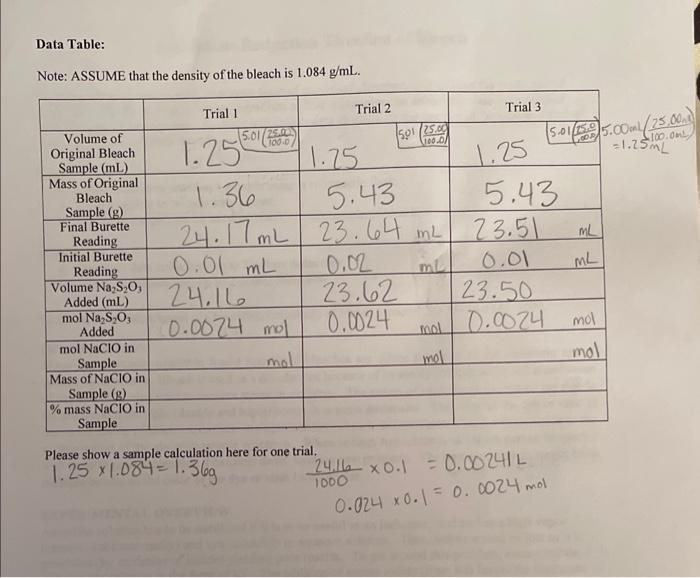 Data Table:
Note: ASSUME that the density of the bleach is 1.084 g/mL.
Trial 1 Trial 2 Trial 3
Volume of Original Bleach Sample (mL) 1.25 5.01 (25.00/100.0) 1.25 5.01 (25.00/100.0) 1.25 5.01 5.00mL (25.00mL/100.0mL)
=1.25mL
Mass of Original Bleach Sample (g) 1.36 5.43 5.43
Final Burette Reading 24.17 mL 23.64 mL 23.51 mL
Initial Burette Reading 0.01 mL 0.02 mL 0.01 mL
Volume Na2S2O3 Added (mL) 24.16 23.62 23.50
mol Na2S2O3 Added 0.0024 mol 0.0024 mol 0.0024 mol
mol NaClO in Sample mol mol mol
Mass of NaClO in Sample (g)
% mass NaClO in Sample
Please show a sample calculation here for one trial.
1.25 x 1.084 = 1.36g 24.16/1000 x 0.1 = 0.00241 L
0.024 x 0.1 = 0.0024 mol